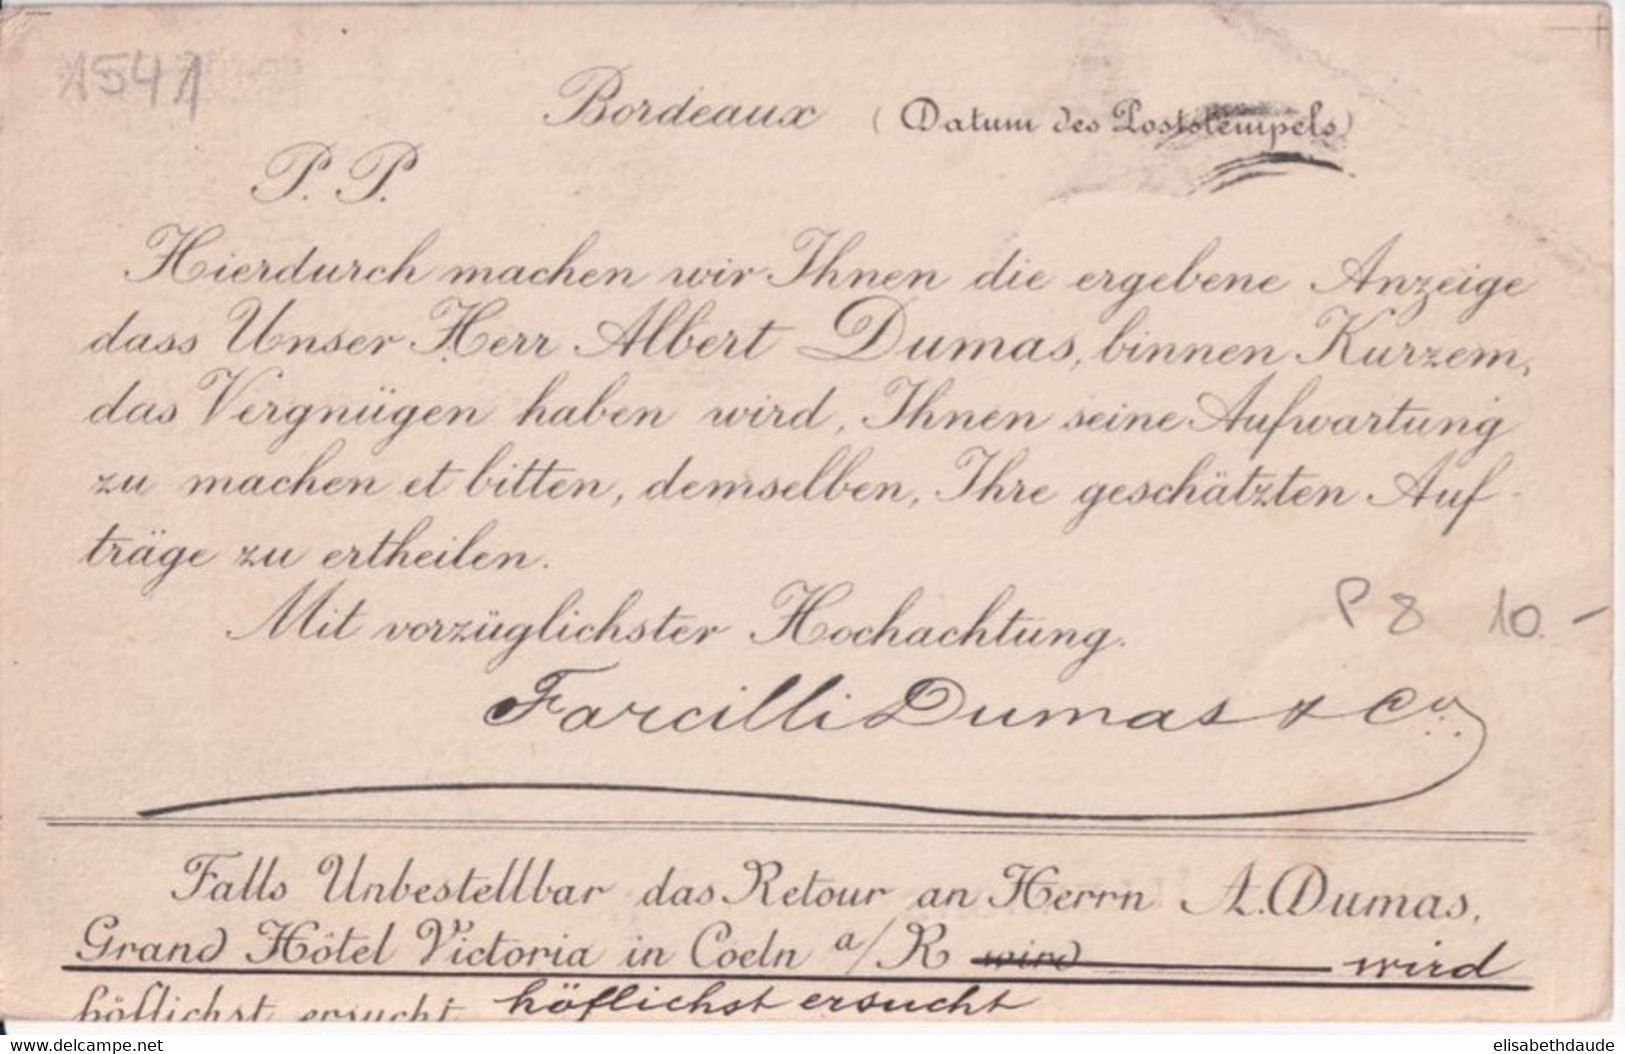 1541
Bordeaux (Datum des Poststempels)
P. P.
Hierdurch machen wir Ihnen die ergebene Anzeige
dass Unser Herr Albert Dumas, binnen Kurzem,
das Vergnügen haben wird, Ihnen seine Aufwartung
zu machen et bitten, demselben, Ihre geschätzten Auf-
träge zu ertheilen.
Mit vorzüglichster Hochachtung.
P 8 10.-
Farcilli Dumas & Co.
Falls Unbestellbar das Retour an Herrn A. Dumas,
Grand Hôtel Victoria in Coeln a/R wird wird
höflichst ersucht höflichst ersucht
www.delcampe.net elisabethdaude